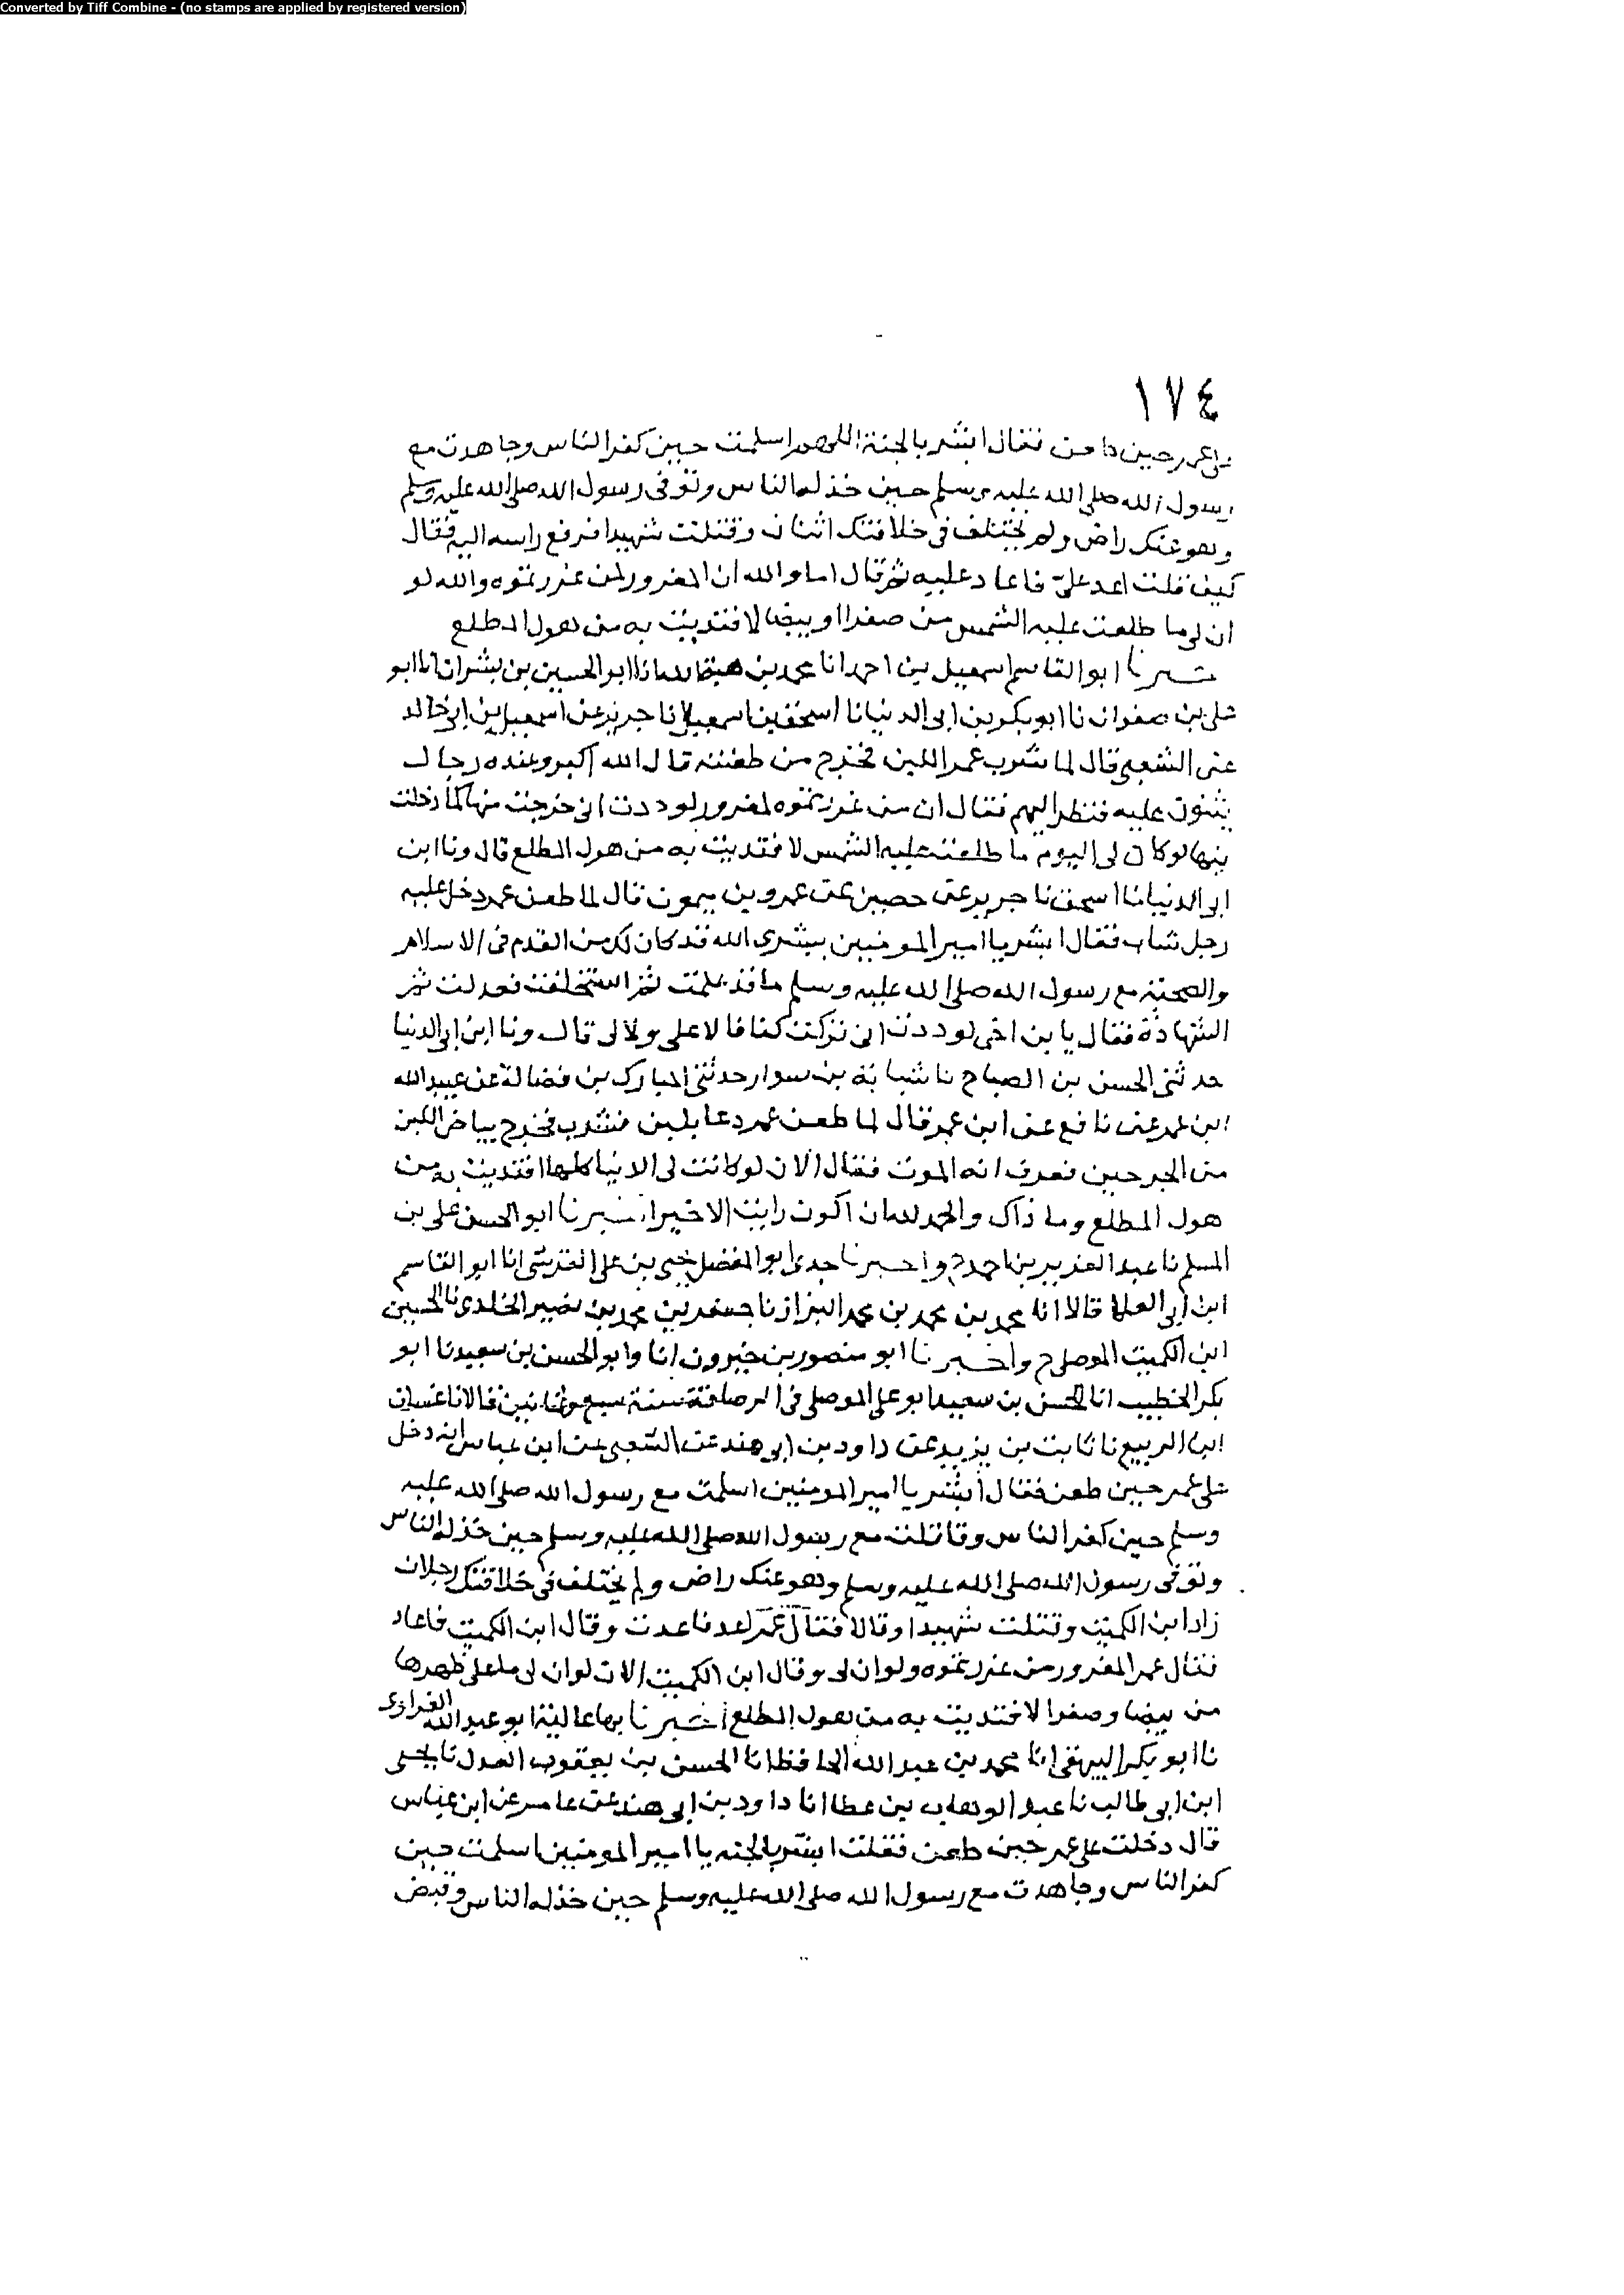 Converted by Tiff Combine - (no stamps are applied by registered version)
١٧٤
على عمر حين طعن فقال ابشر بالجنة اسلمت حين كفر الناس وجاهدت مع
رسول الله صلى الله عليه وسلم حين خذله الناس وتوفى رسول الله صلى الله عليه وسلم
وهو عنك راض ولم يختلف فى خلافتك اثنان وقتلت شهيدا فرفع راسه اليه فقال
كيف قلت اعد علىّ فاعاد عليه ثم قال اما والله ان المغرور لمن غررتموه والله لو
ان لى ما طلعت عليه الشمس من صفرا او بيضا لافتديت به من هول المطلع
ابو القاسم اسمعيل بن احمد انا محمد بن هبة الله انا ابو الحسين بن بشران انا ابو
على بن صفوان نا ابو بكر بن ابى الدنيا نا اسحق بن اسمعيل نا جرير عن اسمعيل بن ابى خالد
عن الشعبى قال لما شرب عمر اللبن فخرج من طعنته قال الله اكبر وعنده رجال
يثنون عليه فنظر اليهم فقال ان من غررتموه لمغرور لوددت انى خرجت منها كما دخلت
فيها لو كان لى اليوم ما طلعت عليه الشمس لافتديت به من هول المطلع قال ونا ابن
ابى الدنيا نا اسحق نا جرير عن حصين عن عمرو بن ميمون قال لما طعن عمر دخل عليه
رجل شاب فقال ابشر يا امير المومنين ببشرى الله قد كان لك من القدم فى الاسلام
والصحبة مع رسول الله صلى الله عليه وسلم ما قد علمت ثم استخلفت فعدلت ثم
الشهادة فقال يا بن اخى لوددت انى تركت كفافا لا على ولا لى قال ونا ابن ابى الدنيا
حدثنى الحسن بن الصباح نا شبابة بن سوار حدثنى المبارك بن فضالة عن عبيد الله
ابن عمر عن نافع عن ابن عمر قال لما طعن عمر دعا بلبن فشرب فخرج بياض اللبن
من الجرحين فعرف انه الموت فقال الان لو كانت لى الدنيا كلها افتديت به من
هول المطلع وما ذاك والحمد لله ان اكون رايت الا خيرا ابو الحسن على بن
المسلم نا عبد العزيز بن احمد ح واخبرنا جدى ابو المفضل يحيى بن على القرشى انا ابو القاسم
ابن ابى العلا قالا انا محمد بن محمد بن محمد البزاز نا جعفر بن محمد بن نصير الخلدى نا الحسين
ابن الكميت الموصلى ح واخبرنا ابو منصور بن خيرون انا وابو الحسن بن سعيد نا ابو
بكر الخطيب انا الحسن بن سعيد ابو على الموصلى فى الرصافة سنة سبع وثمانين قالا نا غسان
ابن الربيع نا ثابت بن يزيد عن داود بن ابى هند عن الشعبى عن ابن عباس انه دخل
على عمر حين طعن فقال ابشر يا امير المومنين اسلمت مع رسول الله صلى الله عليه
وسلم حين كفر الناس وقاتلت مع رسول الله صلى الله عليه وسلم حين خذله الناس
وتوفى رسول الله صلى الله عليه وسلم وهو عنك راض ولم يختلف فى خلافتك رجلان
زاد ابن الكميت وقتلت شهيدا وقالا فقال عمر اعد فاعدت وقال ابن الكميت فاعاد
فقال عمر المغرور من غررتموه ولو ان لى وقال ابن الكميت الان لو ان لى ما على ظهرها
من بيضا وصفرا لافتديت به من هول المطلع اخبرنا بها عالية ابو عبد الله الفراوى
نا ابو بكر البيهقى انا محمد بن عبد الله الحافظ انا الحسن بن يعقوب العدل نا يحيى
ابن ابى طالب نا عبد الوهاب بن عطا انا داود بن ابى هند عن عامر عن ابن عباس
قال دخلت على عمر حين طعن فقلت ابشر بالجنه يا امير المومنين اسلمت حين
كفر الناس وجاهدت مع رسول الله صلى الله عليه وسلم حين خذله الناس وقبض